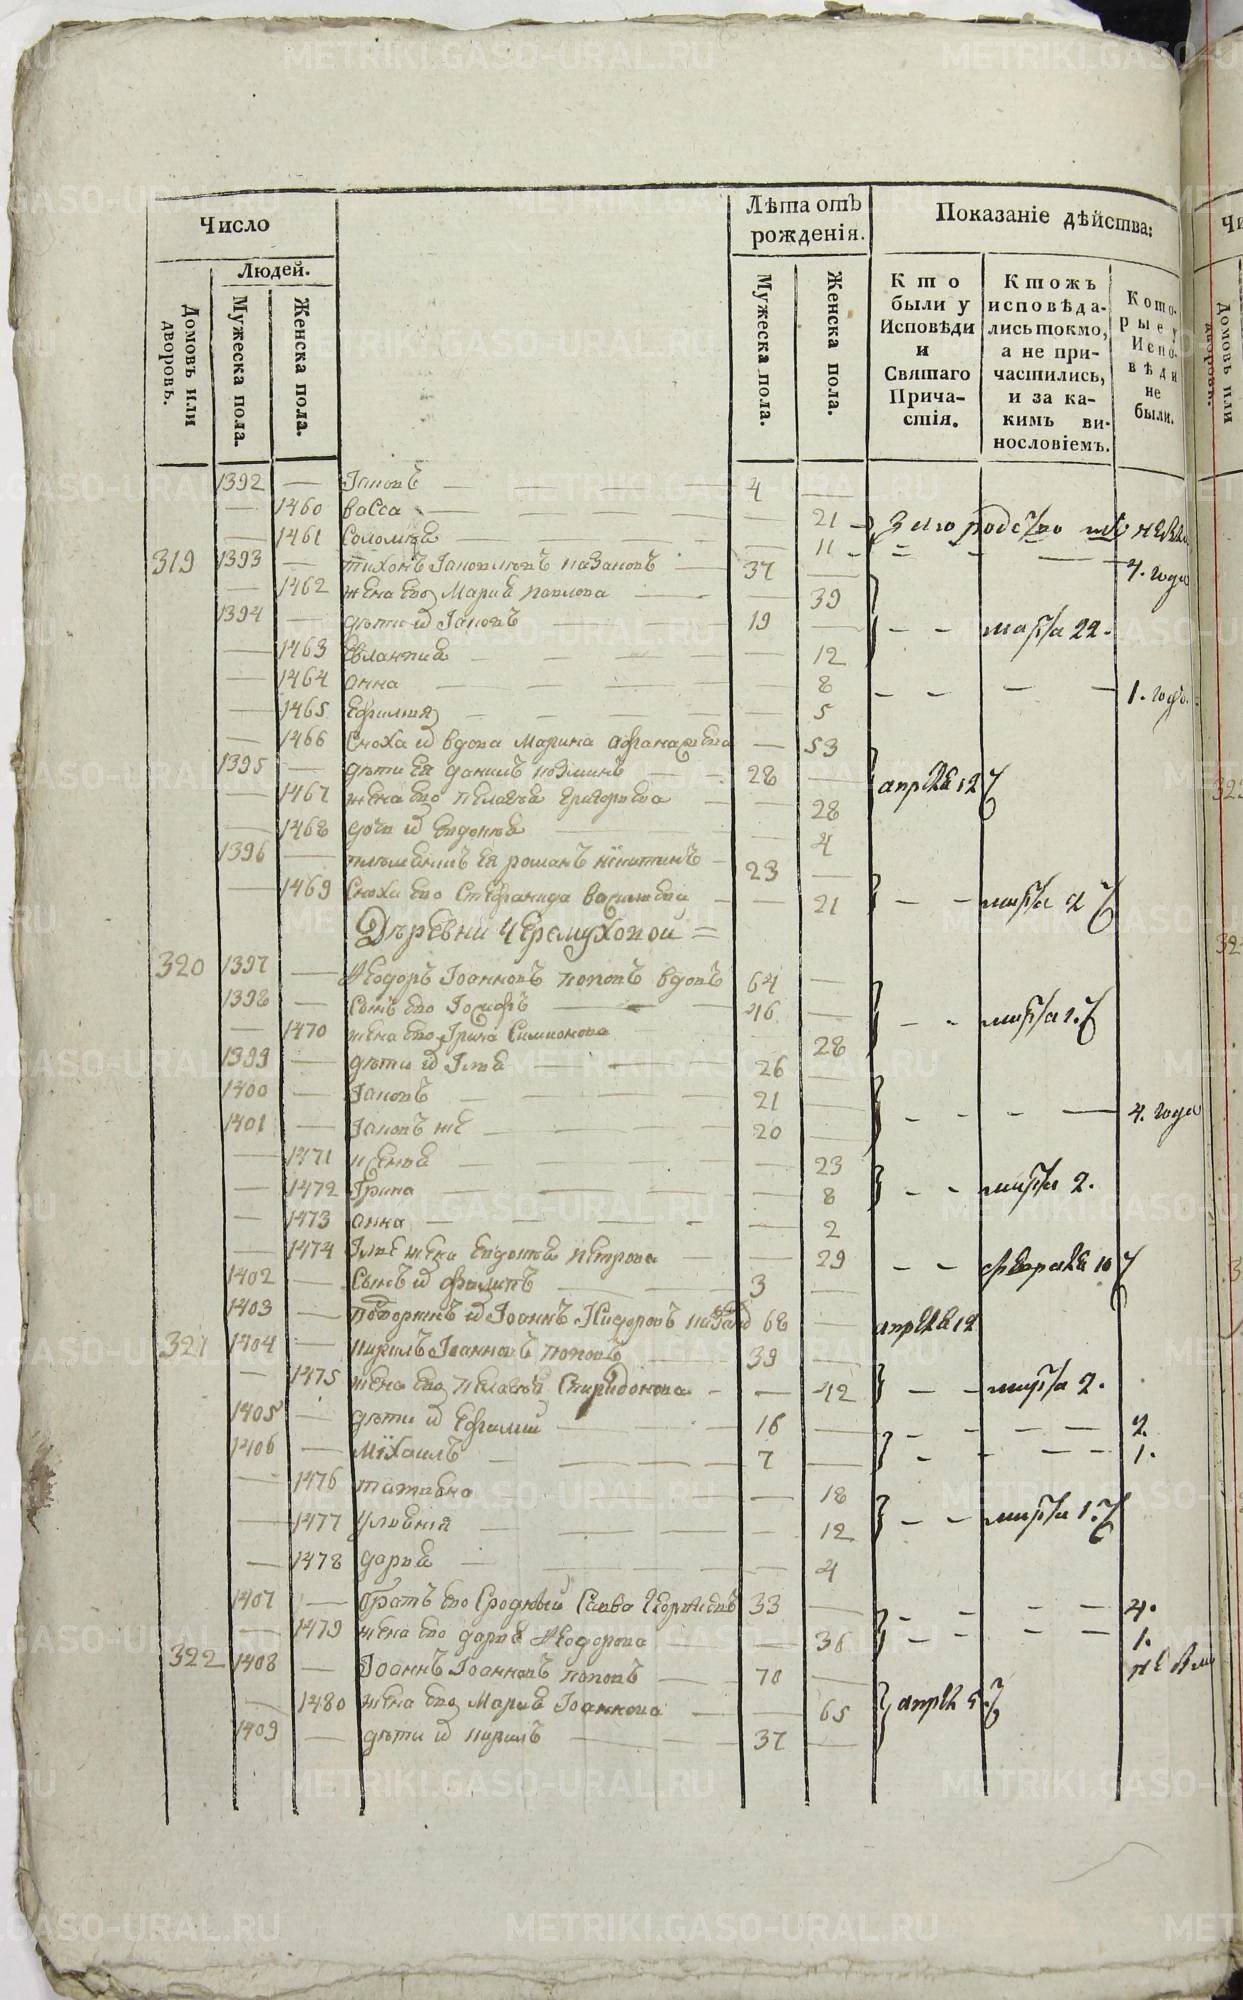 Число
Людей.
Домовъ или дворовъ.
Мужеска пола.
Женска пола.
Лѣта отъ рожденія.
Мужеска пола.
Женска пола.
Показаніе дѣйства:
Кто были у Исповѣди и Святаго Причастія.
Ктожъ исповѣдались токмо, а не причастились, и за какимъ винословіемъ.
Которые у Исповѣди не были.
1392 — Іаковъ — 4
— 1460 васса — 21
— 1461 Соломіа — 11
319 1393 — тихонъ Іаковлевъ казаковъ — 37 — 4. года
— 1462 жена его Маріа павлова — 39
1394 — дѣти и Іаковъ — 19 — марта 22.
— 1463 Евлампиа — 12
— 1464 анна — 8 — 1. годъ
— 1465 Ефимия — 5
— 1466 Сноха и вдова Марина — 53
1395 — дѣти ея данилъ козминъ — 28 — апрѣлѣ 12
— 1467 жена его Пелагѣа Григорьева — 28
— 1468 дочь и Евдокѣа — 4
1396 — племянникъ ея романъ никитинъ — 23
— 1469 Сноха его Стефанида васильева — 21 — марта 2
Дѣревни Черемуховой =
320 1397 — Ѳеодоръ Іоанновъ поповъ вдовъ 64
1398 — Сынъ его Іосифъ — 46 — марта 1.
— 1470 жена его Ірина Симионова 28
1399 — дѣти и Іліа — 26
1400 — Іаковъ — 21
1401 — Іаковъ же — 20 — 4. года
— 1471 — 23
— 1472 Ірина — 8 — марта 2.
— 1473 анна — 2
— 1474 Іліе жена Евдокѣа Петрова — 29 — февралѣ 10
1402 — Сынъ и филипъ — 3
1403 — и Іоаннъ 68 — апрѣлѣ 12
321 1404 — кирилъ Іоанновъ поповъ — 39
— 1475 жена его Пелагѣа Спиридонова — 42 — марта 2.
1405 — дѣти и Ефимий — 16 — 2.
1406 — Міхаилъ — 7 — 1.
— 1476 татиана — 18
— 1477 Улиания — 12 — марта 1.
— 1478 дарьа — 4
1407 — братъ его Сродный Савва 33 — 4.
— 1479 жена его дарьа Ѳеодорова — 36 — 1.
322 1408 — Іоаннъ Іоанновъ поповъ — 70
— 1480 жена его Мариа Іоаннова — 65 — апрѣл 5.
1409 — дѣти и кирилъ — 37
METRIKI.GASO-URAL.RU